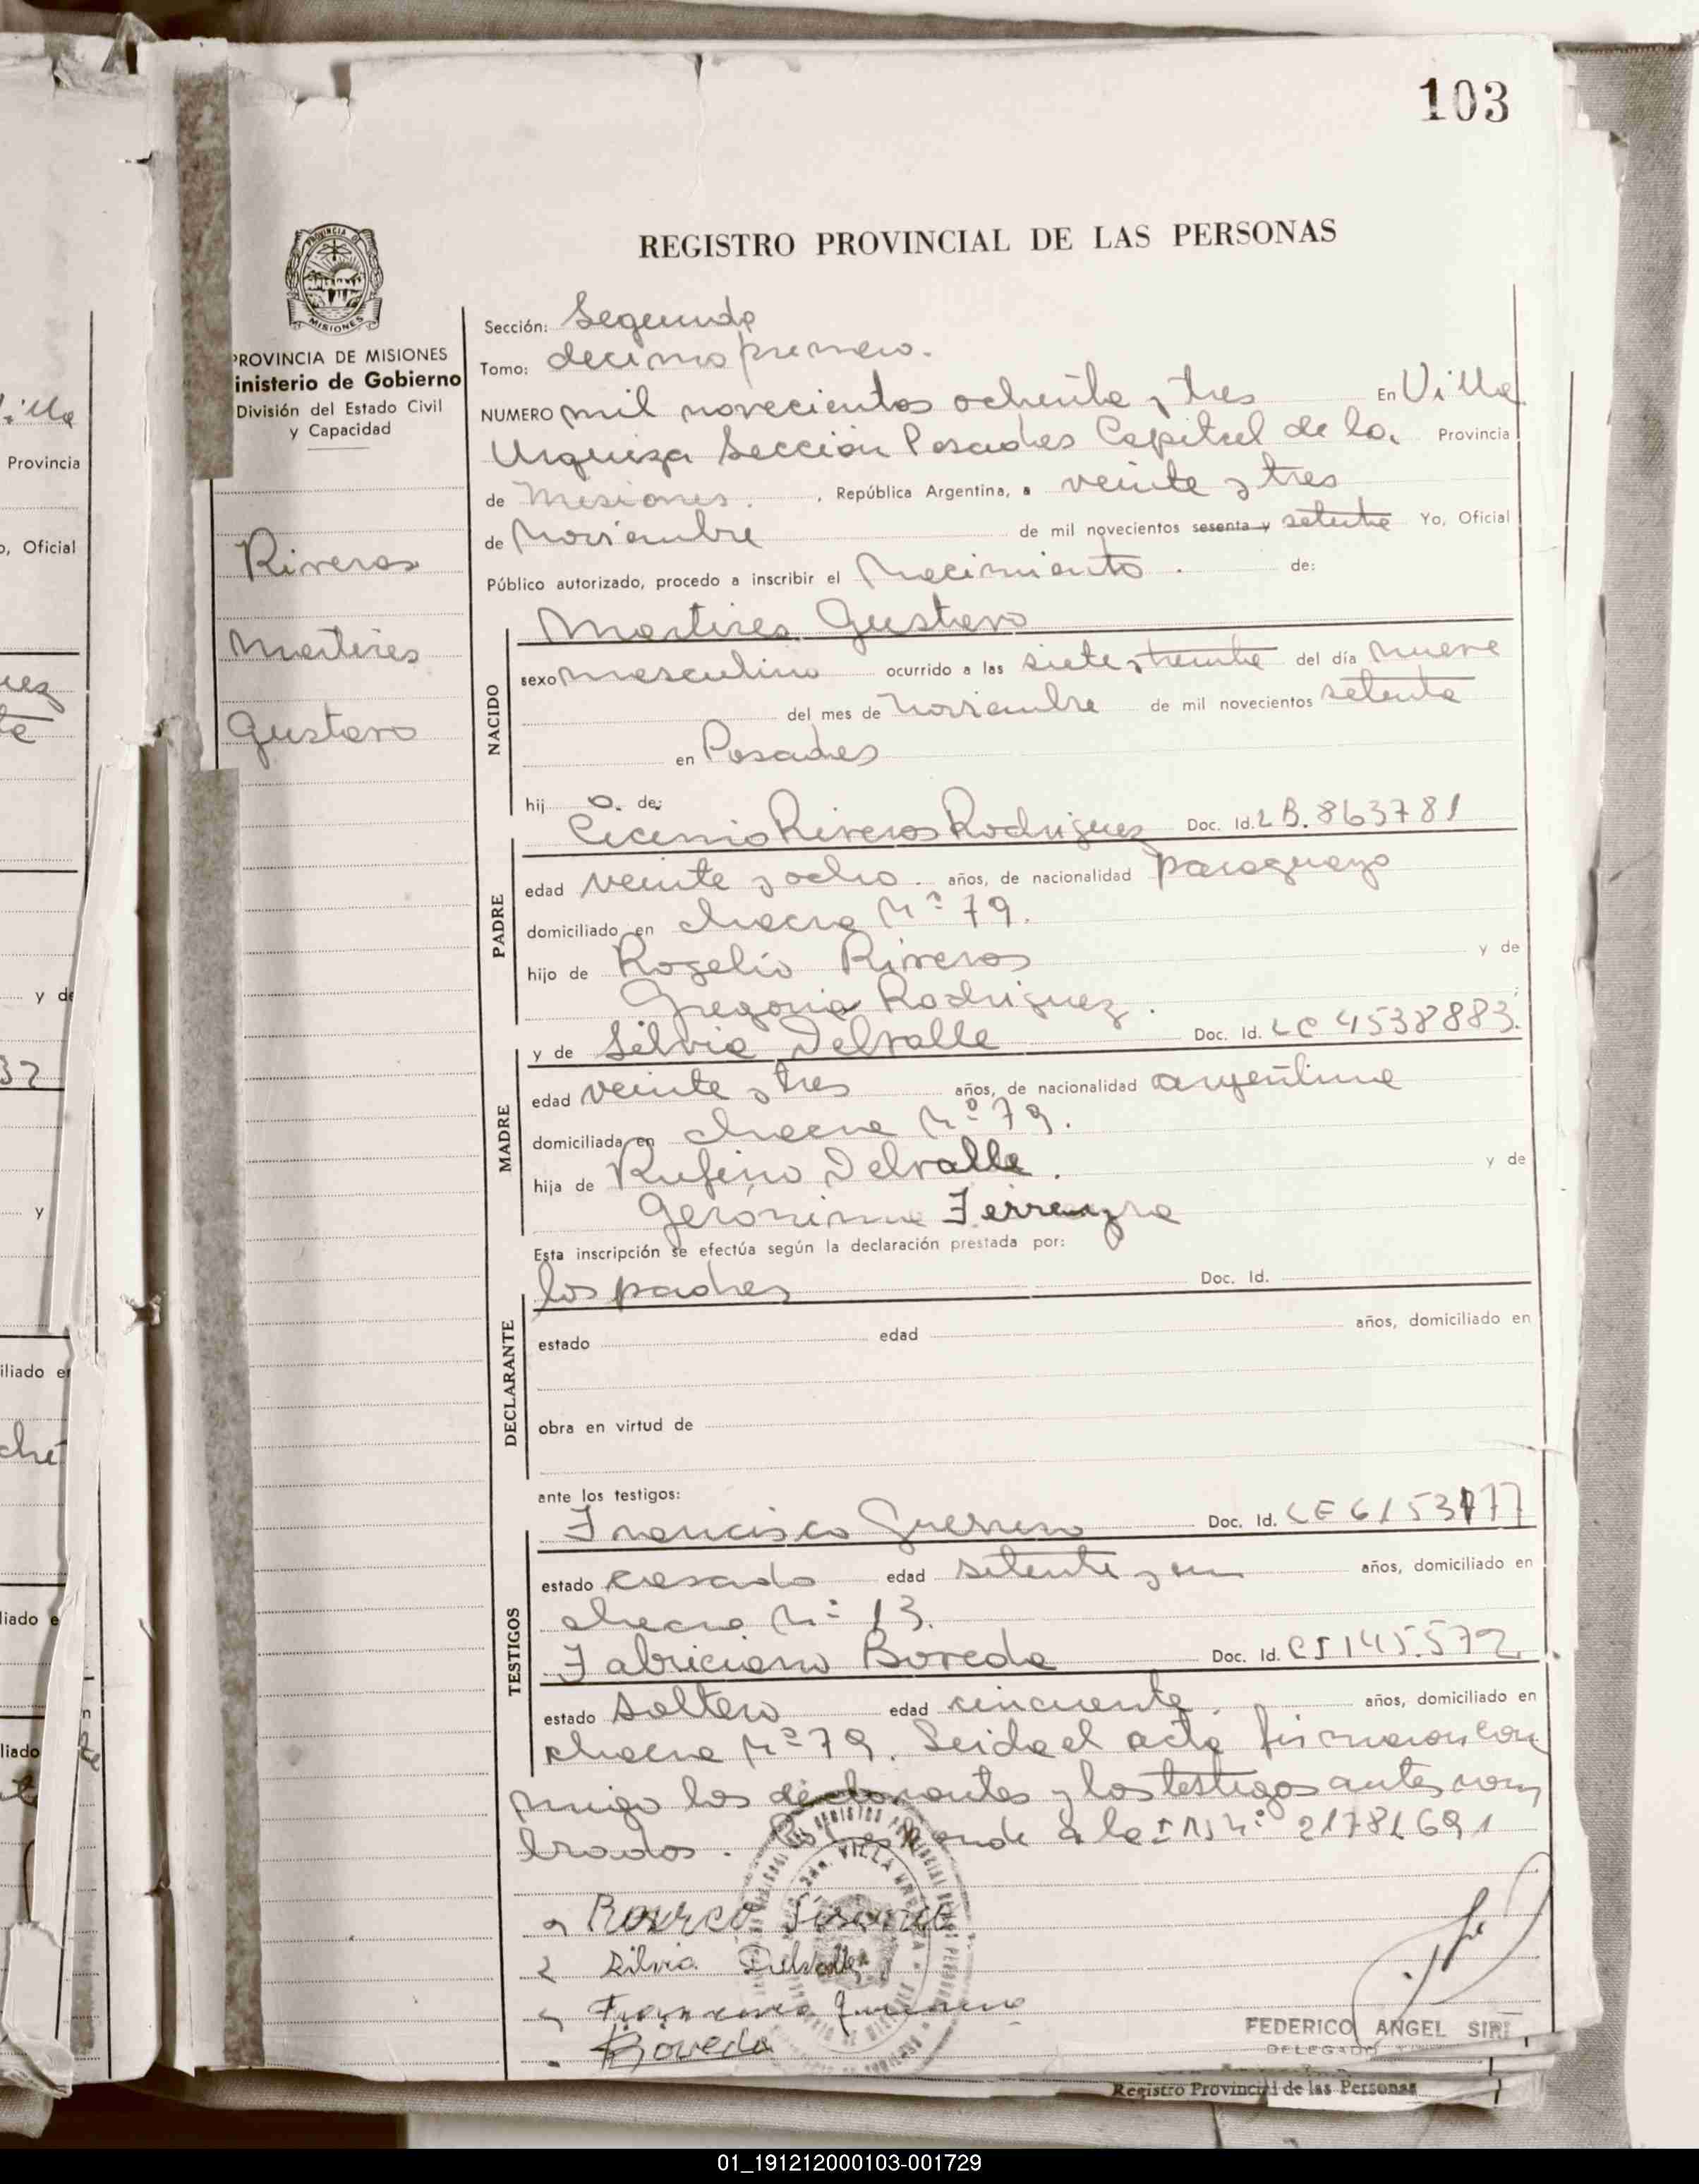 103
REGISTRO PROVINCIAL DE LAS PERSONAS
PROVINCIA DE MISIONES
inisterio de Gobierno
División del Estado Civil
y Capacidad
Riveros
Martires
Gustavo
Sección: Segunda
Tomo: decimo primero.
NUMERO mil novecientos ochenta y tres En Villa
Urquiza Sección Posadas Capital de la Provincia
de Misiones. , República Argentina, a veinte y tres
de Noviembre de mil novecientos sesenta y setenta Yo, Oficial
Público autorizado, procedo a inscribir el Nacimiento. de:
Martires Gustavo
NACIDO
sexo masculino ocurrido a las siete y treinta del día nueve
del mes de Noviembre de mil novecientos setenta
en Posadas
hij o. de:
Riveros Rodriguez Doc. Id. 863781
PADRE
edad veinte y ocho. años, de nacionalidad paraguayo
domiciliado en chacra Nº 79.
hijo de Rogelio Riveros y de
Gregoria Rodriguez.
y de Silvia Delvalle Doc. Id. LC 4538883.
MADRE
edad veinte y tres años, de nacionalidad argentina
domiciliada en chacra Nº 79.
hija de Rufino Delvalle. y de
Geronima Ferreyra
Esta inscripción se efectúa según la declaración prestada por:
los padres Doc. Id.
DECLARANTE
estado edad años, domiciliado en
obra en virtud de
ante los testigos:
Francisco Guerrero Doc. Id. CE
TESTIGOS
estado casado edad setenta y un años, domiciliado en
chacra Nº 13.
Fabriciano Boveda Doc. Id. CI 145.572
estado soltero edad cincuenta, años, domiciliado en
chacra Nº 79. Leida el acta firmaron con
migo los declarantes y los testigos antes nom
brados. Corresponde a la I N Nº 21781691
Silvia Delvalle
Boveda
FEDERICO ANGEL SIRI
DELEGADO
Registro Provincial de las Personas
01_191212000103-001729